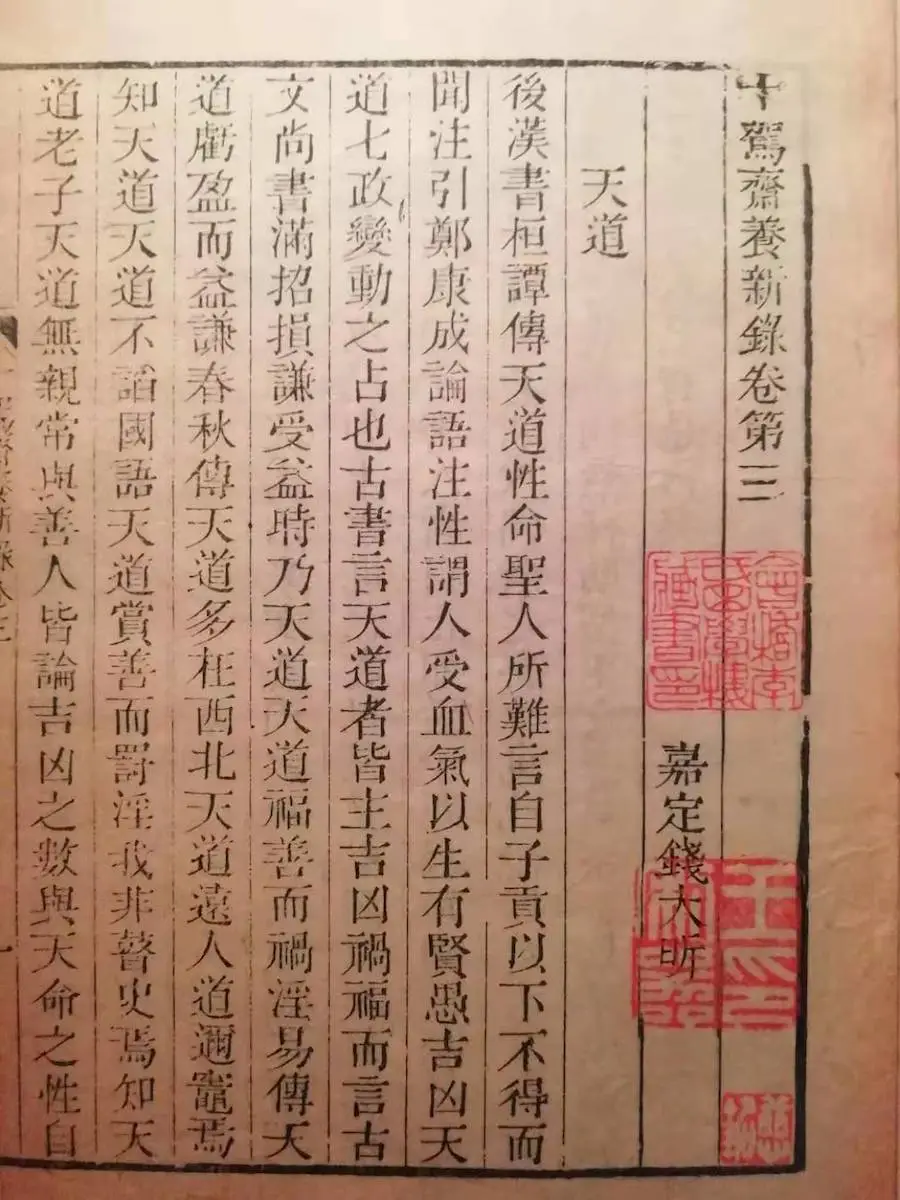 十駕齋養新錄卷第三
嘉定錢大昕
天道
後漢書桓譚傳天道性命聖人所難言自子貢以下不得而
聞注引鄭康成論語注性謂人受血氣以生有賢愚吉凶天
道七政變動之占也古書言天道者皆主吉凶禍福而言古
文尚書滿招損謙受益時乃天道天道福善而禍淫易傳天
道虧盈而益謙春秋傳天道多在西北天道遠人道邇竈焉
知天道天道不謟國語天道賞善而罰淫我非瞽史焉知天
道老子天道無親常與善人皆論吉凶之數與天命之性自